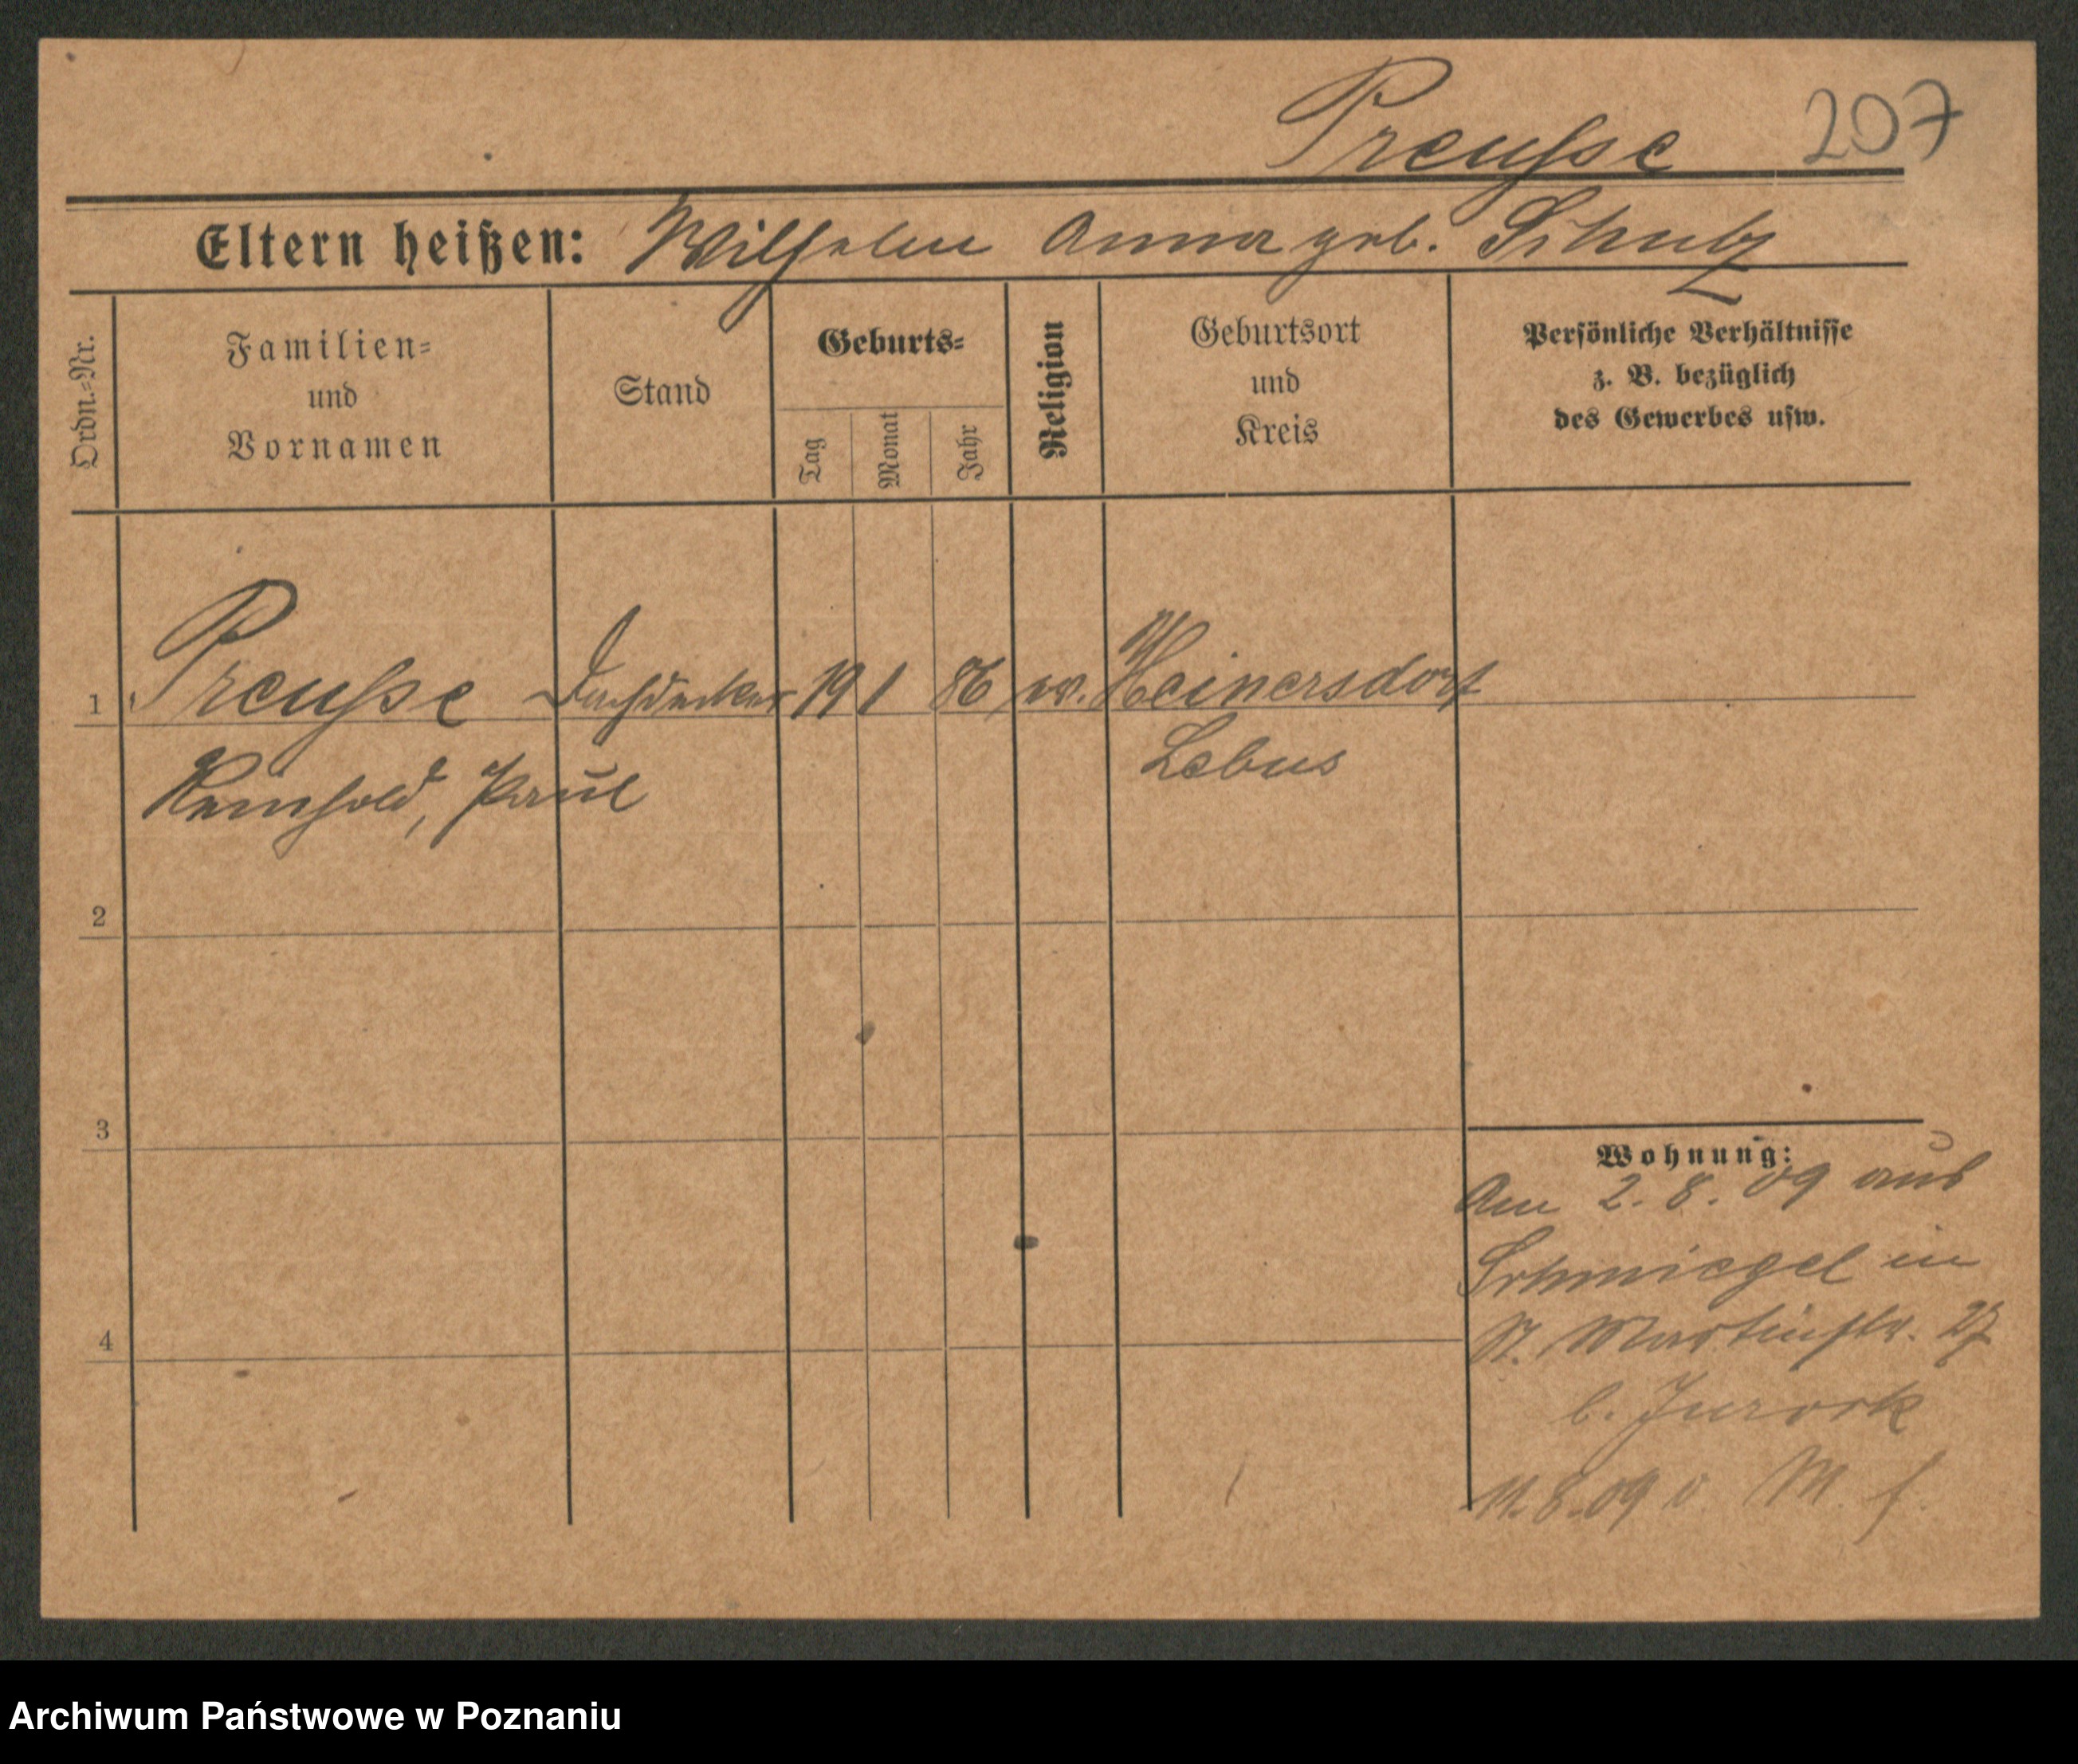 Preuße 207
Eltern heißen: Wilhelm Anna geb. Schulz
Ordn.=Nr.
Familien=
und
Vornamen
Stand
Geburts=
Tag
Monat
Jahr
Religion
Geburtsort
und
Kreis
Persönliche Verhältnisse
z. B. bezüglich
des Gewerbes usw.
1 Preuße Dachdecker 19 1 86 ev. Heinersdorf
Reinhold, Paul Lebus
2
3
4
Wohnung:
Am 2. 8. 09 aus
Schmiegel in
St. Martinstr. 27
b. Jurock
11.8.09 v. M. f.
Archiwum Państwowe w Poznaniu